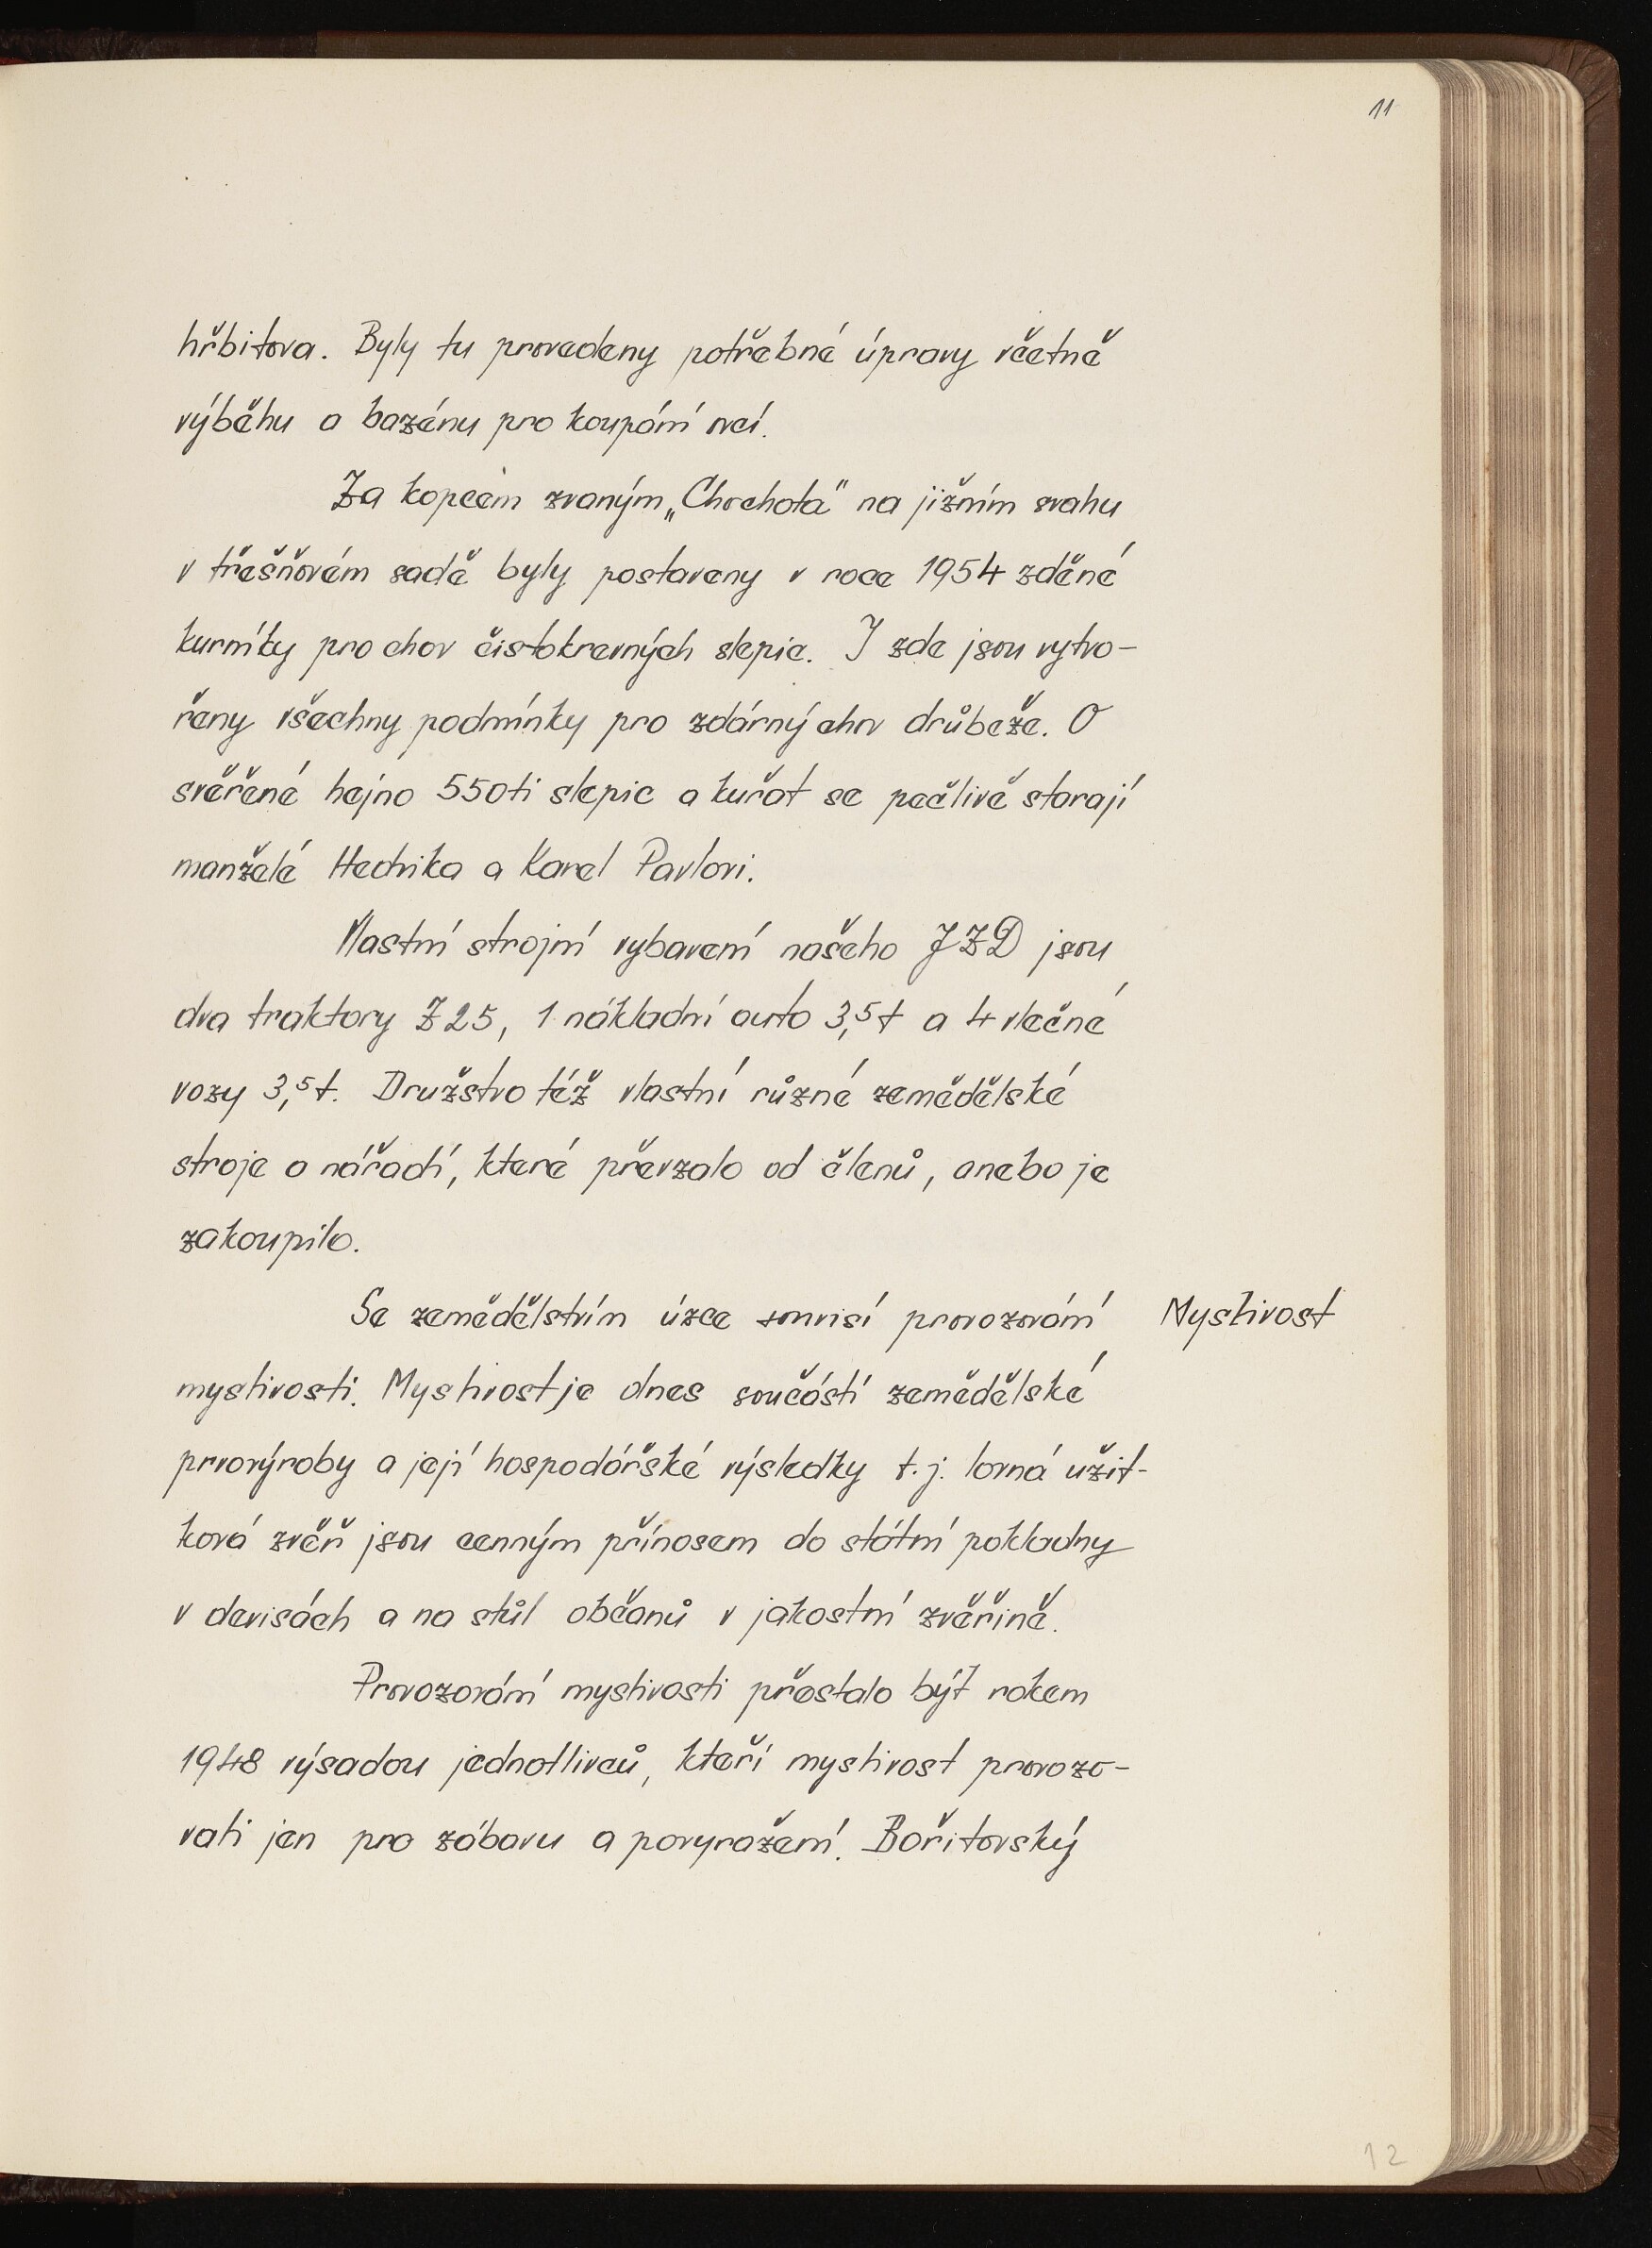 11
hřbitova. Byly tu provedeny potřebné úpravy včetně
výběhu a bazénu pro koupání ovcí.
Za kopcem zvaným „Chochola" na jižním svahu
v třešňovém sadě byly postaveny v roce 1954 zděné
kurníky pro chov čistokrevných slepic. I zde jsou vytvo-
řeny všechny podmínky pro zdárný chov drůbeže. O
svěřené hejno 550ti slepic a kuřat se pečlivě starají
manželé Hedvika a Karel Pavlovi.
Vlastní strojní vybavení našeho JZD jsou
dva traktory Z 25, 1 nákladní auto 3,5 t a 4 vlečné
vozy 3,5 t. Družstvo též vlastní různé zemědělské
stroje a nářadí, které převzalo od členů, anebo je
zakoupilo.
Se zemědělstvím úzce souvisí provozování Myslivost
myslivosti. Myslivost je dnes součástí zemědělské
prvovýroby a její hospodářské výsledky t.j. lovná užit-
ková zvěř jsou cenným přínosem do státní pokladny
v devisách a na stůl občanů v jakostní zvěřině.
Provozování myslivosti přestalo být rokem
1948 výsadou jednotlivců, kteří myslivost provozo-
vali jen pro zábavu a povyražení. Bořitovský
12